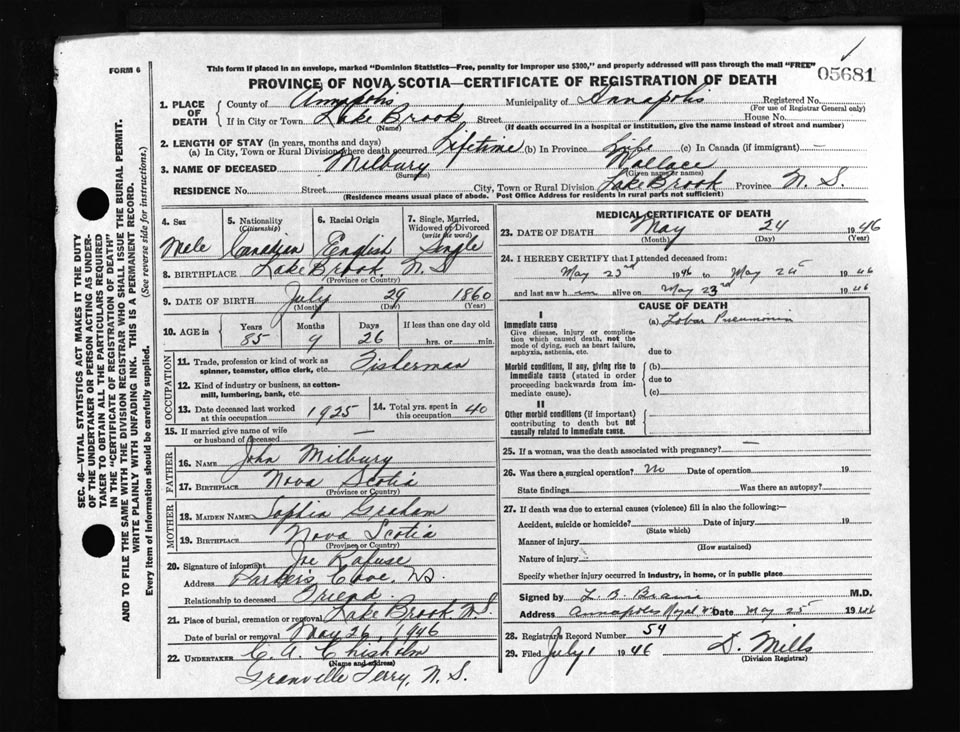 FORM 6
This form if placed in an envelope, marked "Dominion Statistics—Free, penalty for improper use $300," and properly addressed will pass through the mail "FREE"
05681
PROVINCE OF NOVA SCOTIA—CERTIFICATE OF REGISTRATION OF DEATH
1. PLACE OF DEATH
County of Annapolis Municipality of Annapolis Registered No.
(For use of Registrar General only)
If in City or Town Lake Brook Street House No.
(Name) (If death occurred in a hospital or institution, give the name instead of street and number)
2. LENGTH OF STAY (in years, months and days)
(a) In City, Town or Rural Division where death occurred Lifetime (b) In Province Life (c) In Canada (if immigrant) —
3. NAME OF DECEASED Milbury Wallace
(Surname) (Given name or names)
RESIDENCE No. Street City, Town or Rural Division Lake Brook Province N. S.
(Residence means usual place of abode. Post Office Address for residents in rural parts not sufficient)
4. Sex 5. Nationality (Citizenship) 6. Racial Origin 7. Single, Married, Widowed or Divorced (write the word)
Male Canadian English Single
8. BIRTHPLACE Lake Brook, N S
(Province or Country)
9. DATE OF BIRTH July 29 1860
(Month) (Day) (Year)
10. AGE in Years Months Days If less than one day old
85 9 26 hrs. or min.
OCCUPATION
11. Trade, profession or kind of work as spinner, teamster, office clerk, etc. Fisherman
12. Kind of industry or business, as cotton-mill, lumbering, bank, etc.
13. Date deceased last worked at this occupation 1925 14. Total yrs. spent in this occupation 40
15. If married give name of wife or husband of deceased —
FATHER
16. NAME John Milbury
17. BIRTHPLACE Nova Scotia
(Province or Country)
MOTHER
18. MAIDEN NAME Sophia Graham
19. BIRTHPLACE Nova Scotia
(Province or Country)
20. Signature of informant Joe Rafuse
Address Parkers Cove, NS.
Relationship to deceased Friend.
21. Place of burial, cremation or removal Lake Brook N.S.
Date of burial or removal May 26, 1946
22. UNDERTAKER C. A. Chisholm
(Name and address)
Granville Ferry, N. S.
MEDICAL CERTIFICATE OF DEATH
23. DATE OF DEATH May 24 1946
(Month) (Day) (Year)
24. I HEREBY CERTIFY that I attended deceased from:
May 23rd 1946 to May 24 1946
and last saw him alive on May 23rd 1946
CAUSE OF DEATH
I
Immediate cause (a) Lobar Pneumonia
Give disease, injury or complication which caused death, not the mode of dying, such as heart failure, asphyxia, asthenia, etc.
due to
Morbid conditions, if any, giving rise to immediate cause (stated in order proceeding backwards from immediate cause).
(b)
due to
(c)
II
Other morbid conditions (if important) contributing to death but not causally related to immediate cause.
25. If a woman, was the death associated with pregnancy? —
26. Was there a surgical operation? no Date of operation 19
State findings Was there an autopsy?
27. If death was due to external causes (violence) fill in also the following:—
Accident, suicide or homicide? Date of injury 19
(State which)
Manner of injury
(How sustained)
Nature of injury
Specify whether injury occurred in industry, in home, or in public place
Signed by L. B. M.D.
Address Annapolis Royal NS Date May 25 1946
28. Registrar's Record Number 54
29. Filed July 1 1946 D. Mills
(Division Registrar)
SEC. 46—VITAL STATISTICS ACT MAKES IT THE DUTY
OF THE UNDERTAKER OR PERSON ACTING AS UNDER-
TAKER TO OBTAIN ALL THE PARTICULARS REQUIRED
IN THE "CERTIFICATE OF REGISTRATION OF DEATH"
AND TO FILE THE SAME WITH THE DIVISION REGISTRAR WHO SHALL ISSUE THE BURIAL PERMIT.
WRITE PLAINLY WITH UNFADING INK. THIS IS A PERMANENT RECORD.
Every item of information should be carefully supplied. (See reverse side for instructions.)